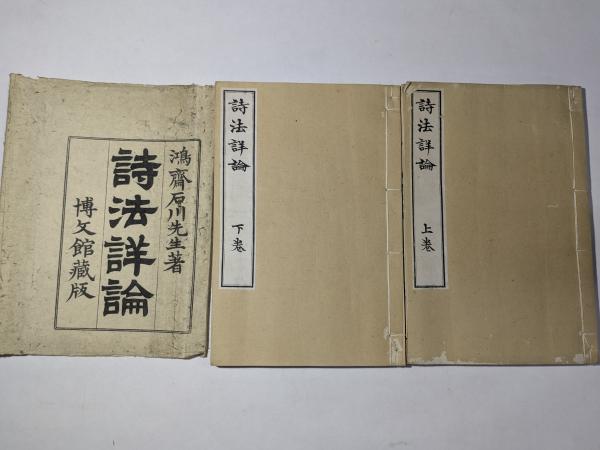 鴻齋石川先生著
詩法詳論
博文館藏版
詩法詳論
下卷
詩法詳論
上卷